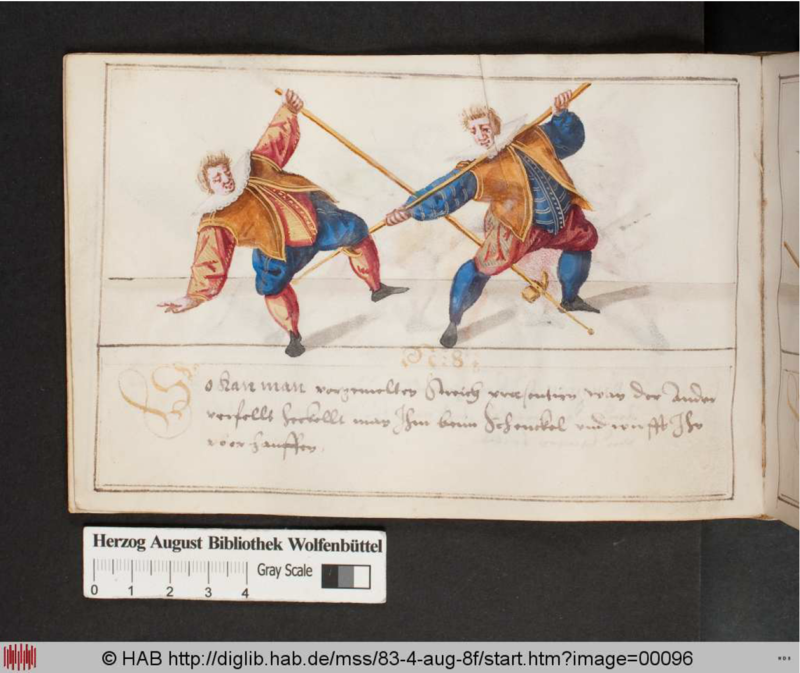 :8:
So kan man vorgemelten Streich presentirn wan der Ander
verfellt heckellt man Ihm beim Schenckel und wirfft Ihn
vber hauffen.
Herzog August Bibliothek Wolfenbüttel
Gray Scale
0 1 2 3 4
© HAB http://diglib.hab.de/mss/83-4-aug-8f/start.htm?image=00096